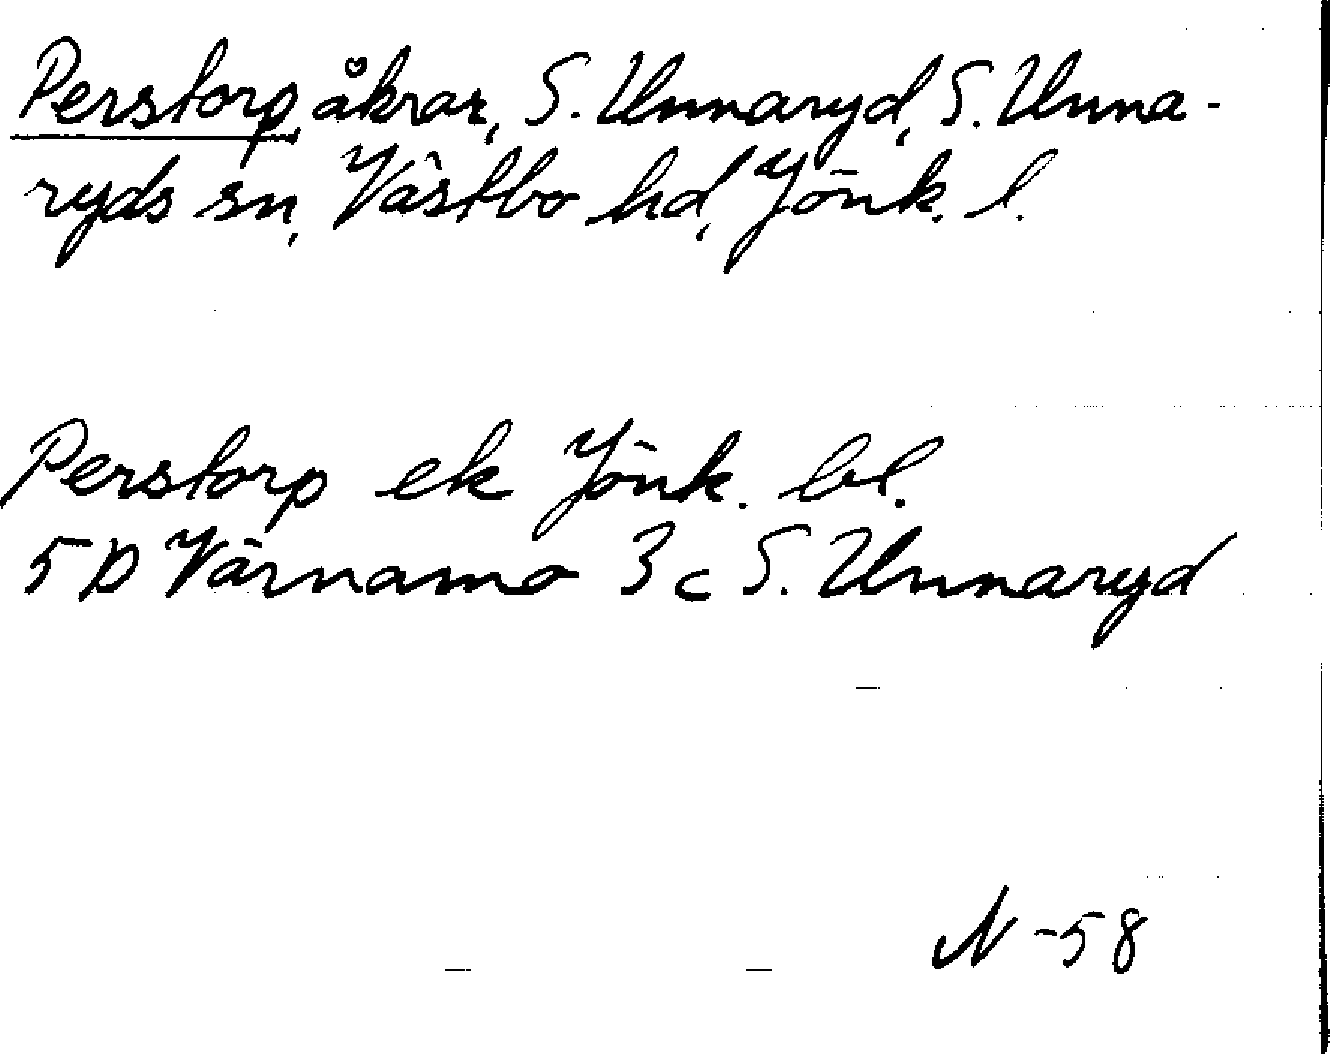 Perstorp, åkrar, S. Unnaryd, S. Unna-
ryds sn, Västbo hd, Jönk. l.
Perstorp ek Jönk. bl.
5D Värnamo 3c S. Unnaryd
N -58